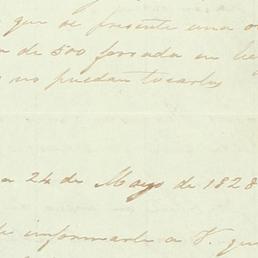 que se presente una o
de 500 forrada en
no puedan tocarlos
a 24 de Mayo de 1828
informarle a V. que